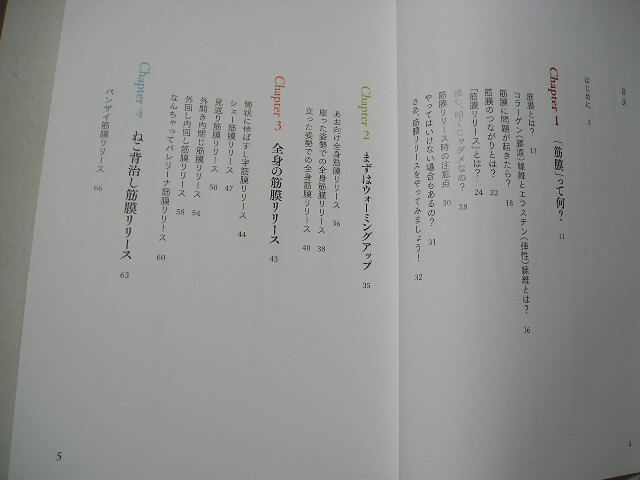 目次
はじめに 2
Chapter 1 「筋膜」って何? 11
筋膜とは? 13
コラーゲン(膠原)線維とエラスチン(弾性)線維とは? 16
筋膜に問題が起きたら? 18
筋膜のつながりとは? 22
「筋膜リリース」とは? 24
揉む、叩くじゃダメなの? 28
筋膜リリース時の注意点 30
やってはいけない場合もあるの? 31
さあ、筋膜リリースをやってみましょう! 32
4
Chapter 2 まずはウォーミングアップ 35
あお向け全身筋膜リリース 36
座った姿勢での全身筋膜リリース 38
立った姿勢での全身筋膜リリース 40
Chapter 3 全身の筋膜リリース 43
筒状に伸ばすS・L字筋膜リリース 44
シェー筋膜リリース 47
見返り筋膜リリース 50
外開き内閉じ筋膜リリース 54
外回し内回し筋膜リリース 58
なんちゃってバレリーナ筋膜リリース 60
Chapter 4 ねこ背治し筋膜リリース 63
バンザイ筋膜リリース 66
5